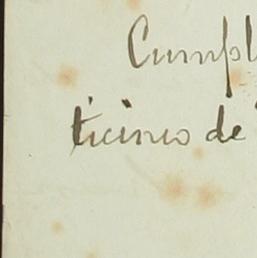 Cumpl
ticinco de